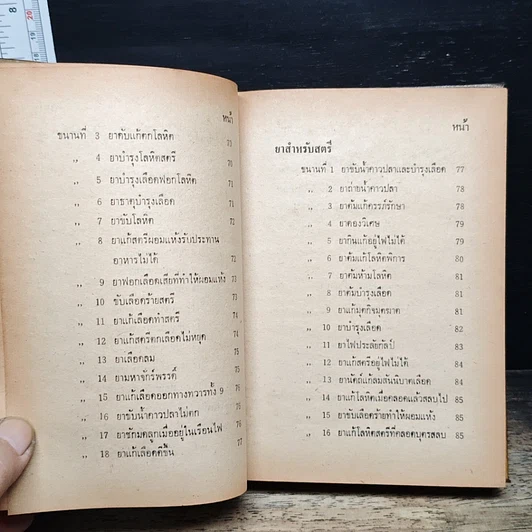 หน้า
ขนานที่ 3 ยาดับแก้ตกโลหิต 71
,, 4 ยาบำรุงโลหิตสตรี 71
,, 5 ยาบำรุงเลือดฟอกโลหิต 71
,, 6 ยาธาตุบำรุงเลือด 71
,, 7 ยาขับโลหิต 72
,, 8 ยาแก้สตรีผอมแห้งรับประทาน
อาหารไม่ได้ 72
,, 9 ยาฟอกเลือดเสียที่ทำให้ผอมแห้ง
,, 10 ขับเลือดร้ายสตรี
,, 11 ยาแก้เลือดทำสตรี 74
,, 12 ยาแก้สตรีตกเลือดไม่หยุด 74
,, 13 ยาเลือดลม 75
,, 14 ยามหาจักร์พรรดิ์ 75
,, 15 ยาแก้เลือดออกทางทวารทั้ง 9 75
,, 16 ยาขับน้ำคาวปลาไม่ตก
,, 17 ยาชักมดลูกเมื่ออยู่ในเรือนไฟ 76
,, 18 ยาแก้เลือดตีขึ้น 77
หน้า
ยาสำหรับสตรี
ขนานที่ 1 ยาขับน้ำคาวปลาและบำรุงเลือด 77
,, 2 ยาถ่ายน้ำคาวปลา 78
,, 3 ยาต้มแก้ครรภ์รักษา 78
,, 4 ยาดองวิเศษ 79
,, 5 ยากินแก้อยู่ไฟไม่ได้ 79
,, 6 ยาต้มแก้โลหิตพิการ 80
,, 7 ยาต้มห้ามโลหิต 81
,, 8 ยาต้มบำรุงเลือด 81
,, 9 ยาแก้มุตกิจมุตฆาต 81
,, 10 ยาบำรุงเลือด 82
,, 11 ยาไฟประลัยกัลป์ 83
,, 12 ยาแก้สตรีอยู่ไฟไม่ได้ 84
,, 13 ยานัตถ์แก้ลมสันนิบาตเลือด 84
,, 14 ยาแก้โลหิตเมื่อคลอดแล้วสลบไป 84
,, 15 ยาขับเลือดร้ายทำให้ผอมแห้ง 85
,, 16 ยาแก้โลหิตสตรีที่คลอดบุตรสลบ 85